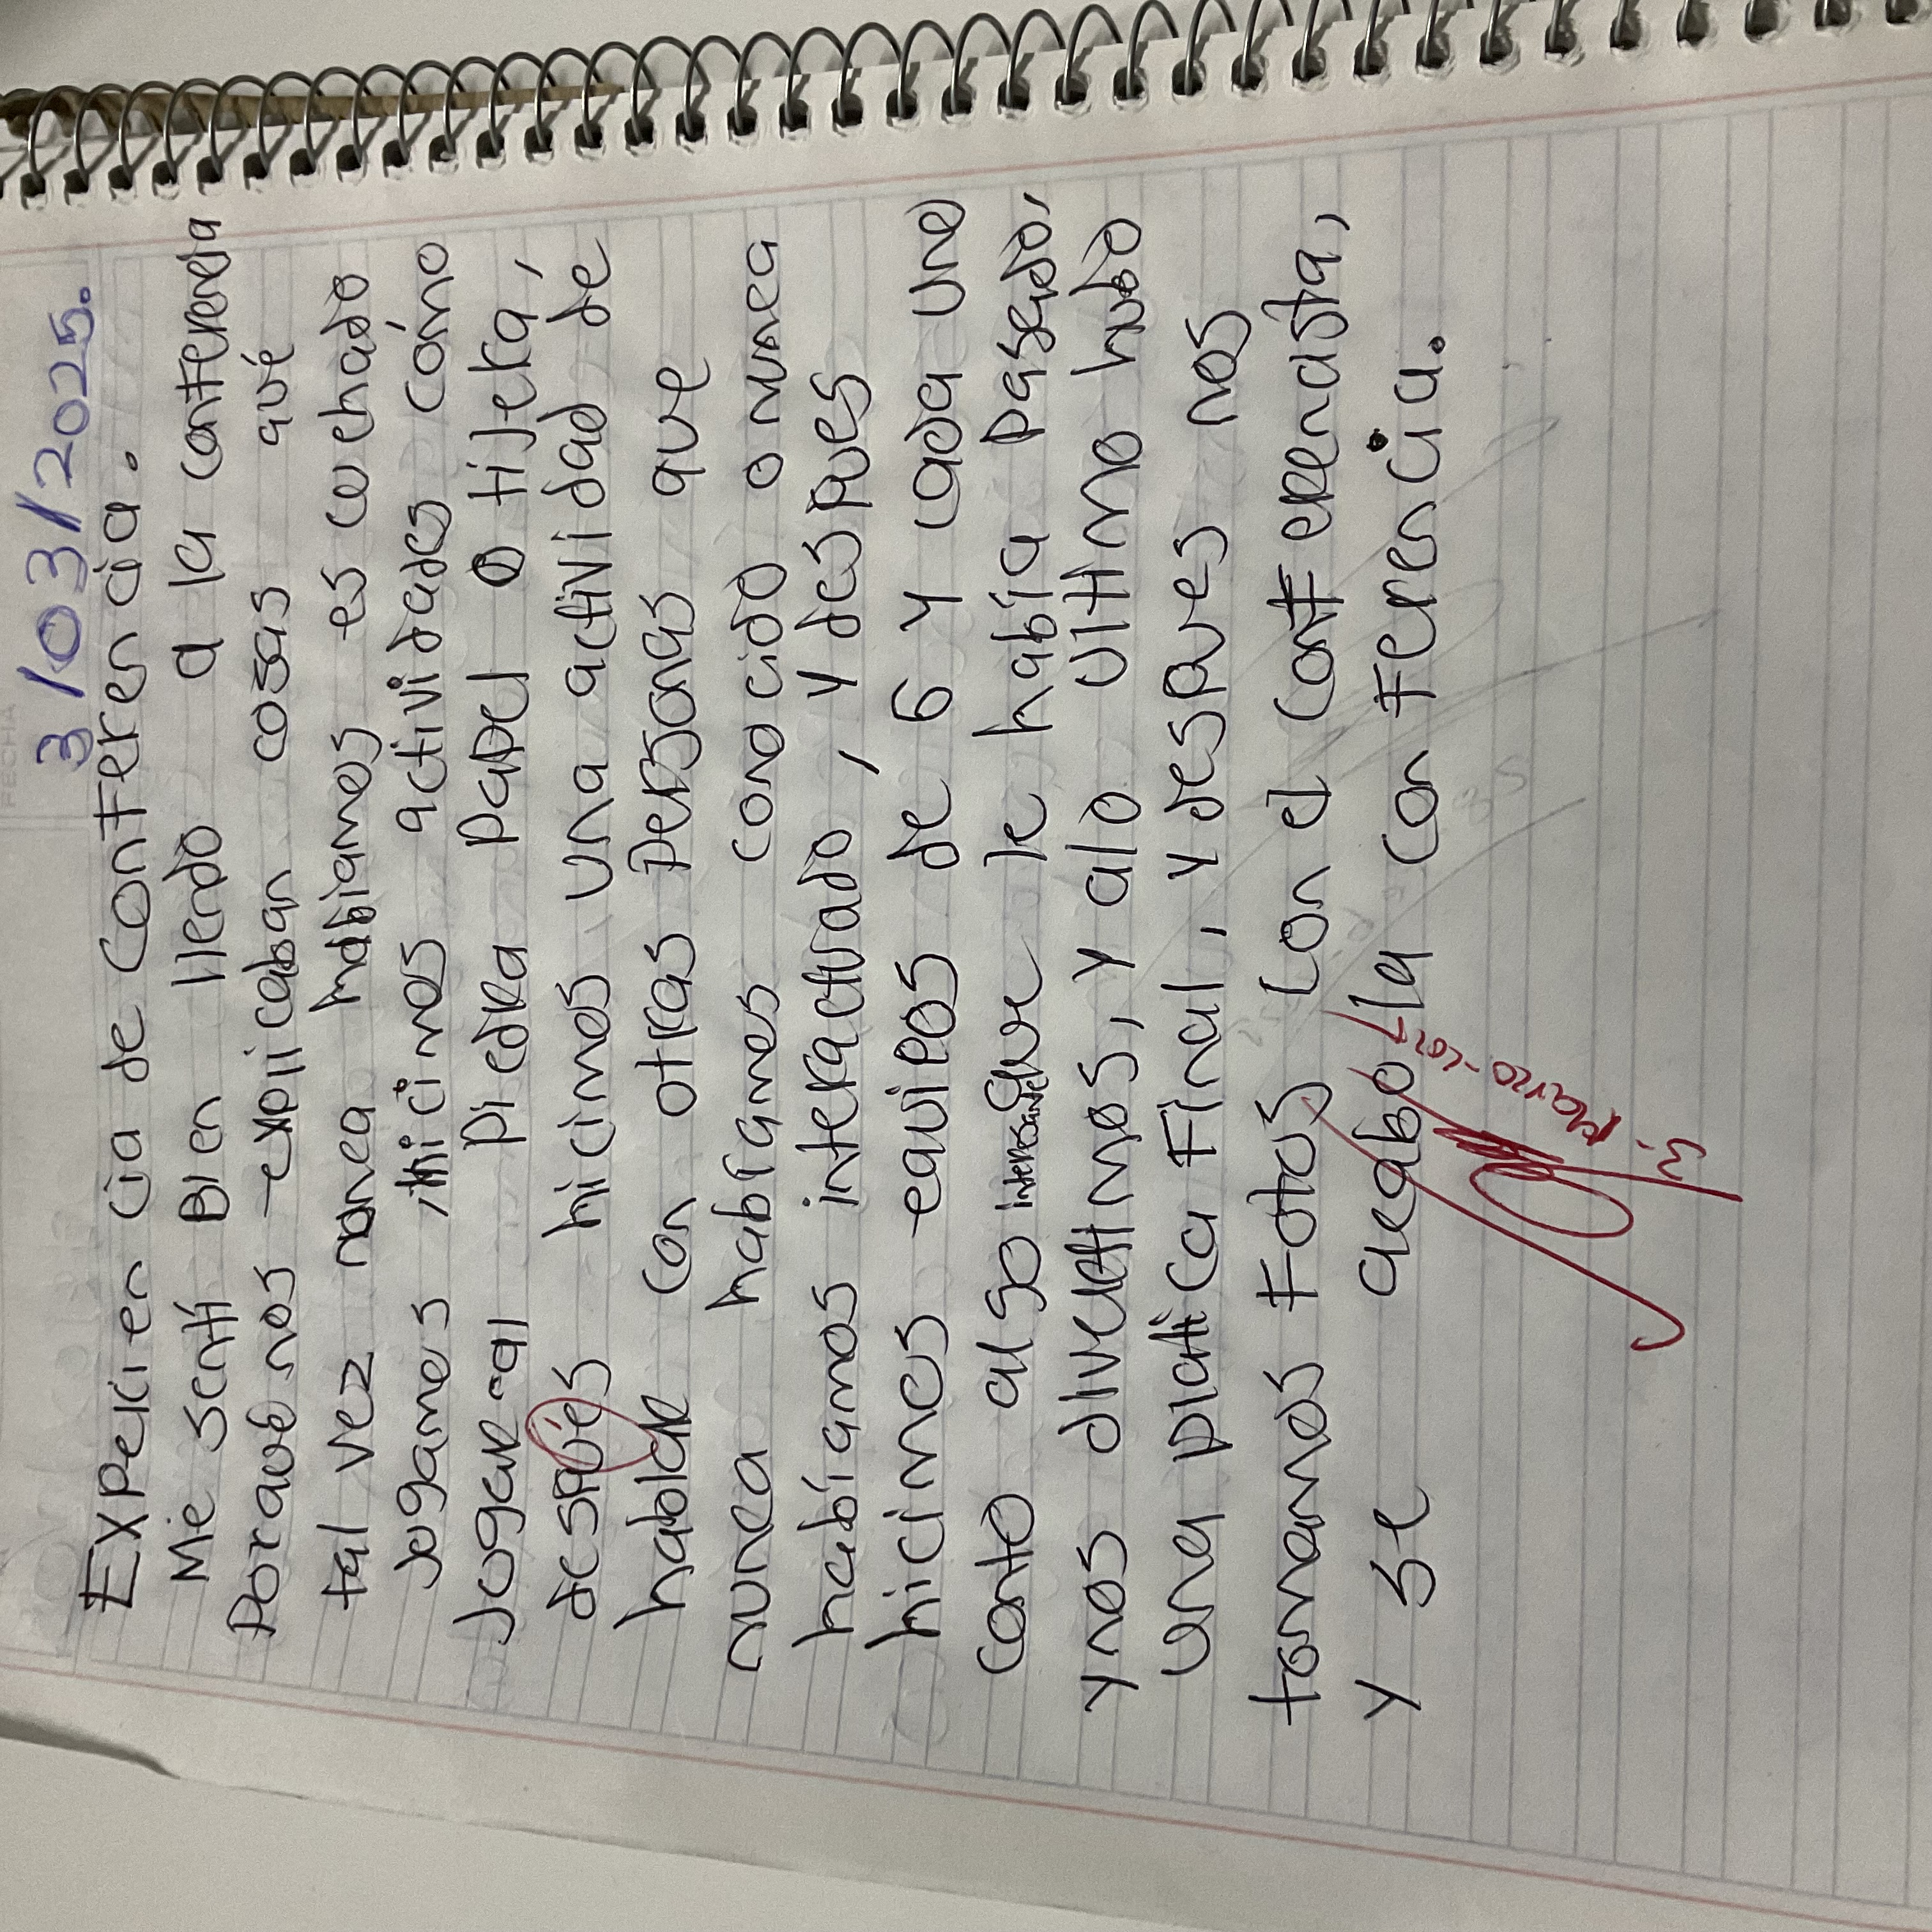 FECHA
3/03/2025.
Experiencia de Conferencia.
Me sentí Bien llendo a la conferencia
Porqué nos explicaban cosas qué
tal vez nunca habiamos escuchado
Jugamos hicimos actividades cómo
Jugar al Piedra Papel o tijera,
después hicimos una actividad de
hablar con otras Personas que
nunca habíamos conocido o nunca
habíamos interactuado, y despues
hicimos equipos de 6 y cada uno
conto algo interesante que le había pasado,
y nos divertimos, y alo ultimo hubo
una platica Final, y despues nos
tomamos Fotos con el conferencista,
y se acabo la conferencia.
3-Marzo-2025